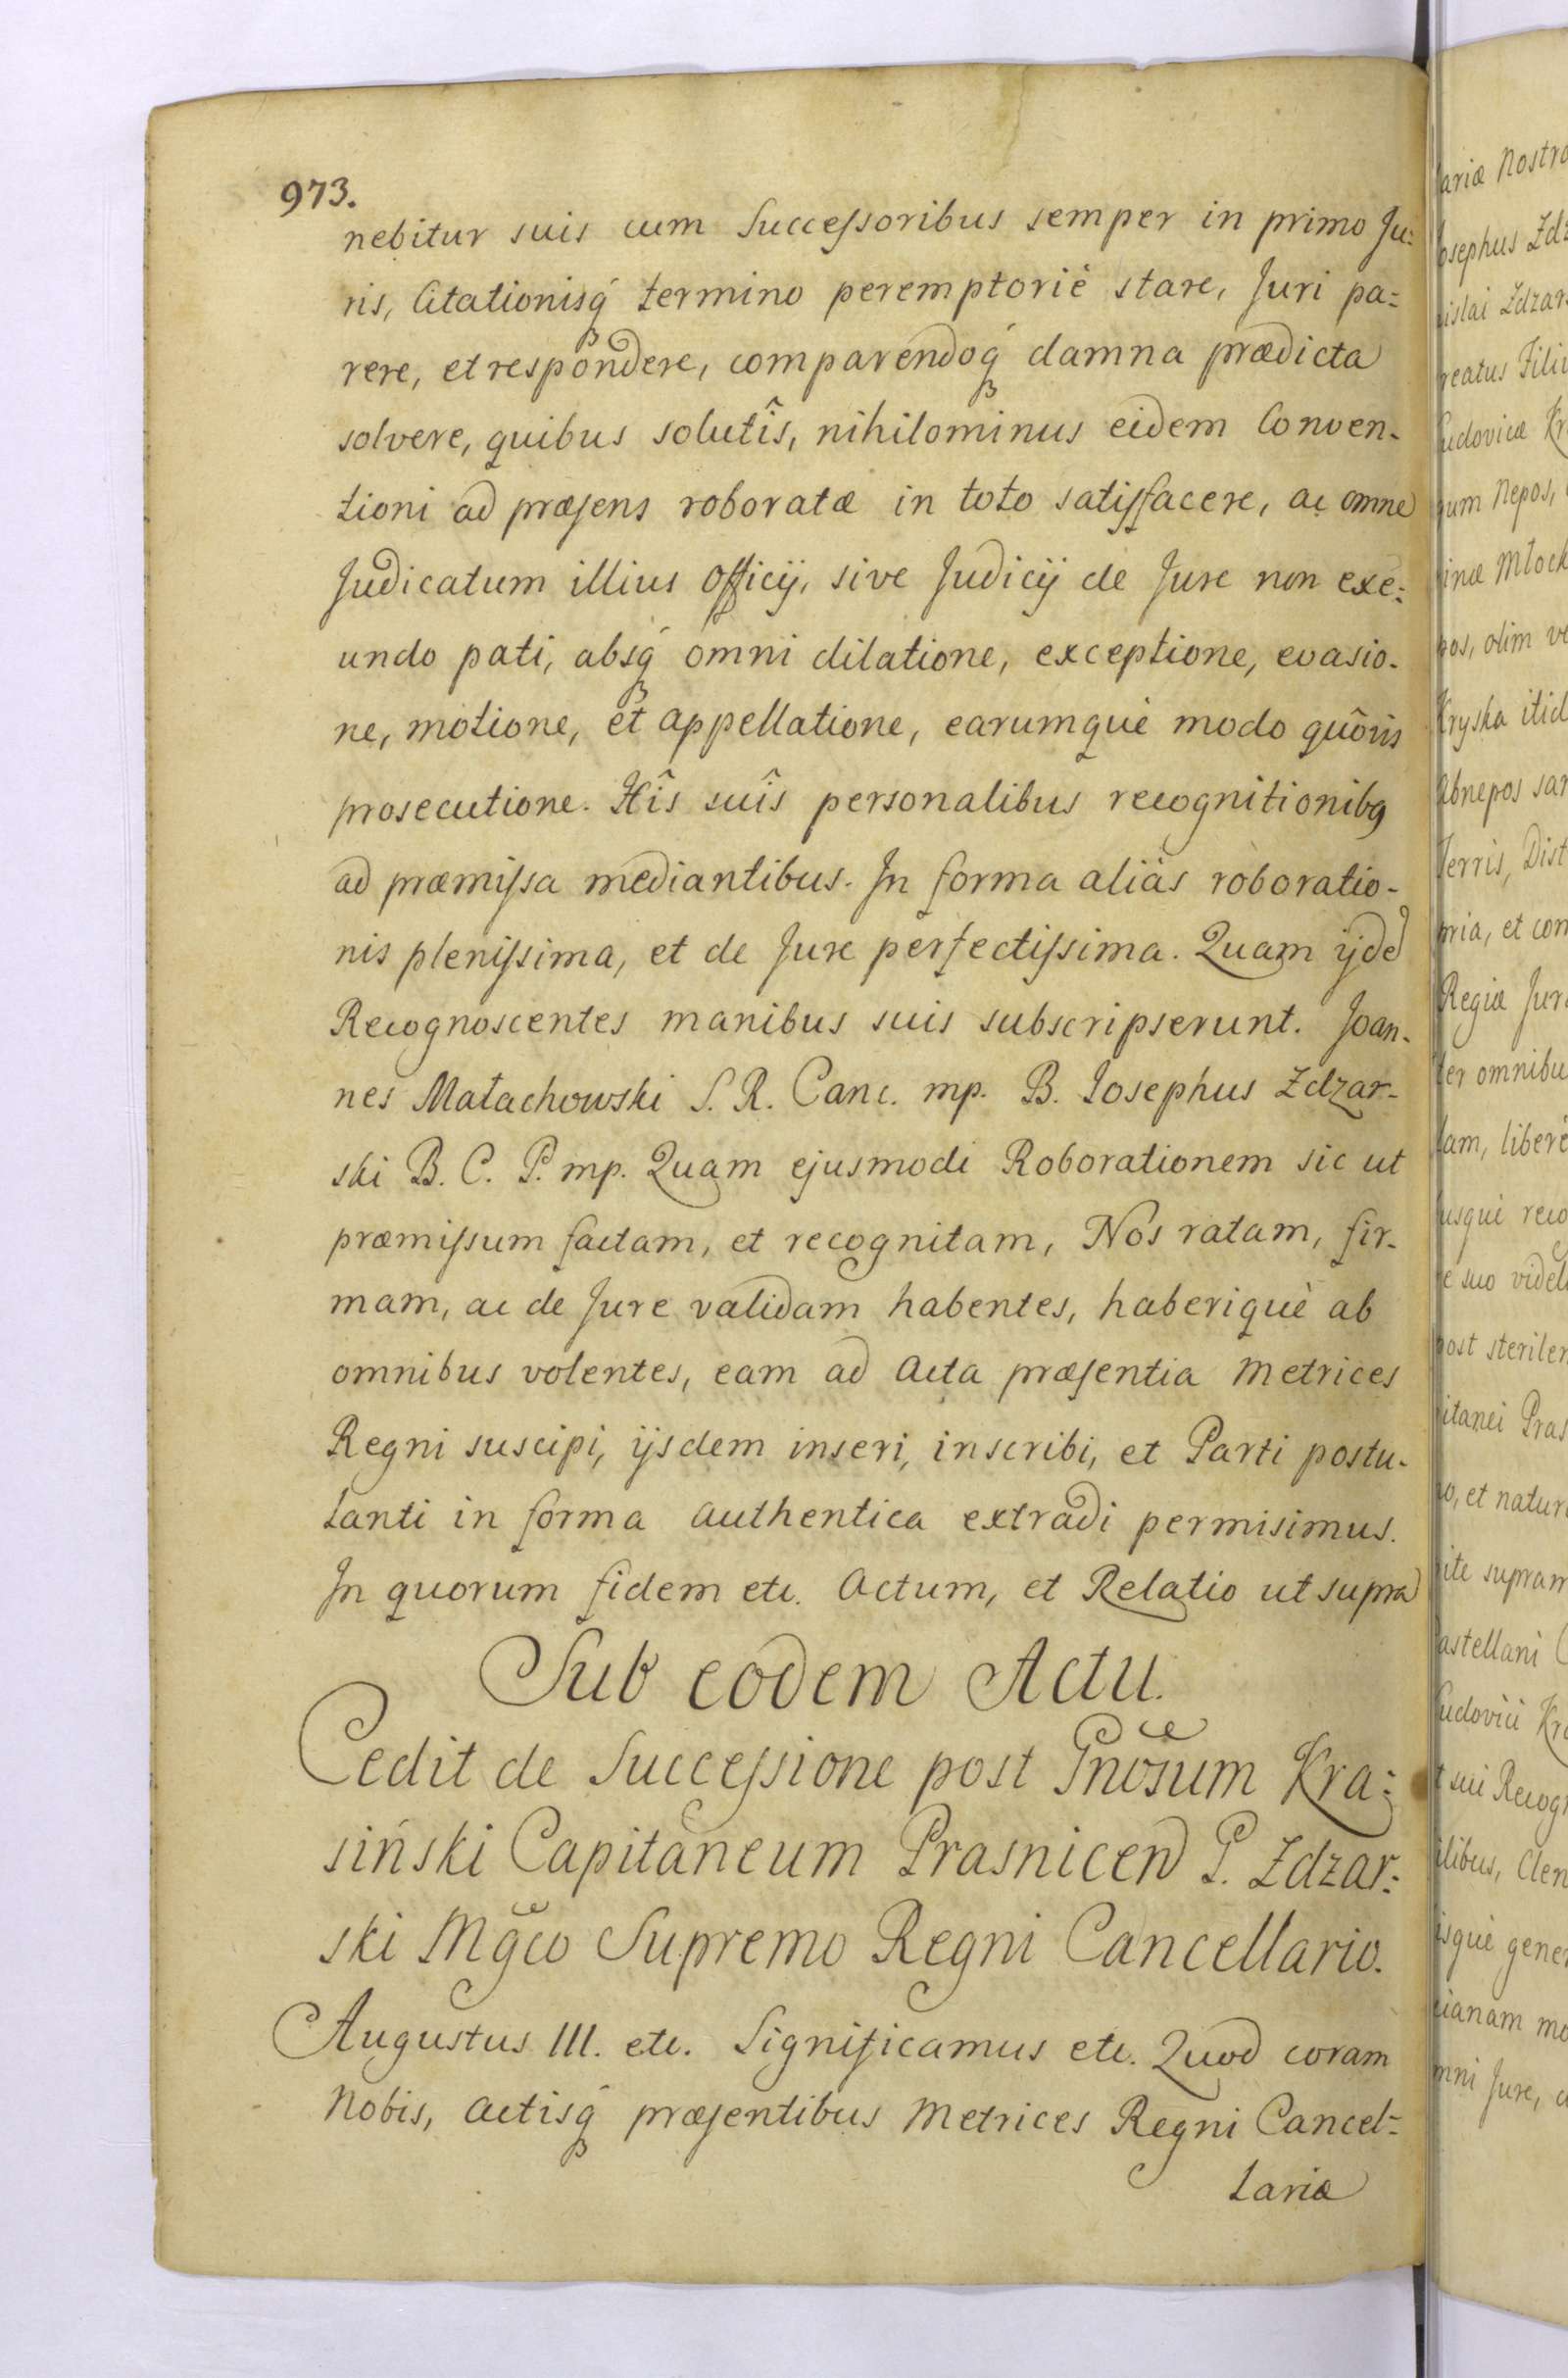 973.
nebitur suis cum Successoribus semper in primo Ju:
ris, Citationisq́ termino peremptoriè stare, Juri pa:
rere, et respondere, comparendoq́ damna prædicta
solvere, quibus solutîs, nihilominus eidem Conven-
tioni ad præsens roboratæ in toto satisfacere, ac omne
Judicatum illius Officij, sive Judicij de Jure non exe:
undo pati, absq́ omni dilatione, exceptione, evasio-
ne, motione, et appellatione, earumquè modo quôvis
prosecutione. Hîs suîs personalibus recognitionibq
ad præmissa mediantibus. In forma aliàs roboratio-
nis plenissima, et de Jure perfectissima. Quam ijdẽ
Recognoscentes manibus suis subscripserunt. Joan-
nes Małachowski S. R. Canc. mp. B. Iosephus Zdzar-
ski B. C. P. mp. Quam ejusmodi Roborationem sic ut
præmissum factam, et recognitam, Nos ratam, fir-
mam, ac de Jure validam habentes, haberiquè ab
omnibus volentes, eam ad Acta præsentia Metrices
Regni suscipi, ijsdem inseri, inscribi, et Parti postu-
lanti in forma authentica extradi permisimus.
In quorum fidem etc. Actum, et Relatio ut supra
Sub eodem Actu.
Cedit de Successione post Gnosum Kra:
siński Capitaneum Prasnicen G. Zdzar:
ski Mgco Supremo Regni Cancellario.
Augustus III. etc. Significamus etc. Quod coram
Nobis, Actisq́ præsentibus Metrices Regni Cancel-
lariæ
lariæ Nostræ
Josephus Zdz
nislai Zdzar
reatus Filiu
Ludovicæ Kr
gum Nepos,
inæ Młock
pos, olim
Kryska itid
Abnepos
Terris, Dist
pria, et con
Regiæ Jur
ter omnibu
dam, liberè
jusquè reco
re suo videl
post sterilem
pitanei Pras
et natur
rite supram
Castellani
Ludovici Kra
suis Recogn
ilibus, Clen
isquè gener
mni Jure,